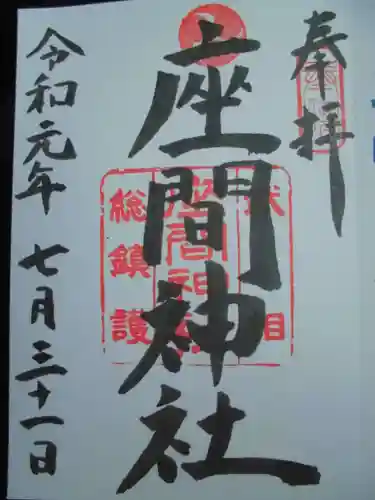 奉拝
座間神社
相武
座間神社
総鎮護
令和元年 七月三十一日